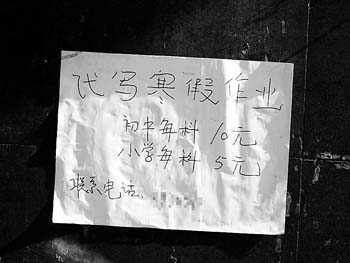 代写寒假作业
初中每科 10元
小学每科 5元
联系电话: